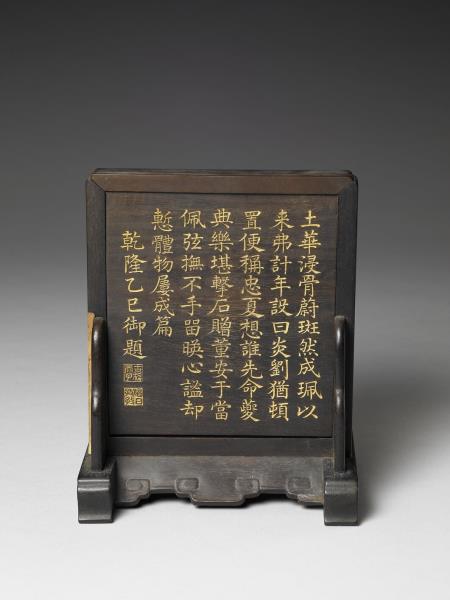 土華浸骨蔚斑然成珮以
来弗計年設曰炎劉猶頓
置使稱忠夏想誰先命夔
典樂堪擊石贈董安于當
佩弦撫不手留暎心謐却
慙體物屢成篇
乾隆乙巳御題